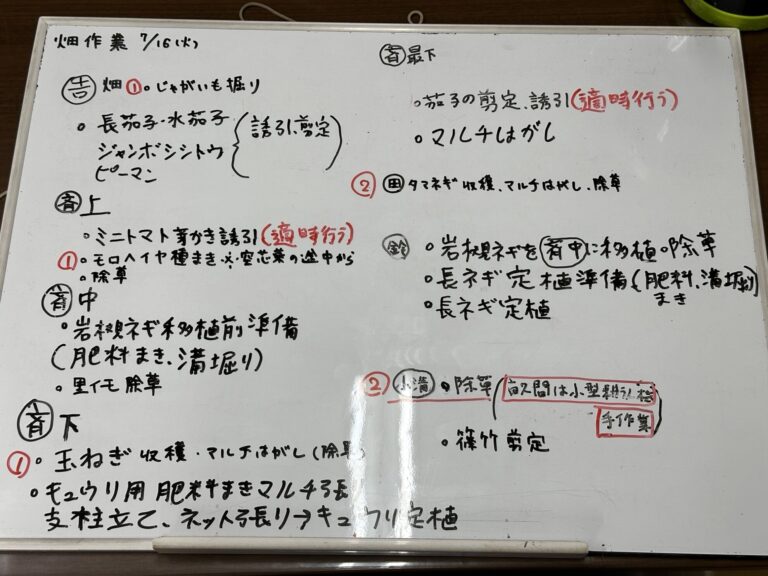 畑作業 7/16(火)
吉 畑 ① 。じゃがいも掘り
。長茄子・水茄子
ジャンボシシトウ
ピーマン
(誘引、剪定)
斉 上
。ミニトマト芽かき誘引(適時行う)
① 。モロヘイヤ種まき ※空芯菜の途中から
。除草
斉 中
。岩槻ネギ移植前準備
(肥料まき、溝堀り)
。里イモ除草
斉 下
① 。玉ねぎ 収穫・マルチはがし(除草)
。キュウリ用 肥料まきマルチ張
支柱立て、ネット張り→キュウリ定植
斉 最下
。茄子の剪定、誘引(適時行う)
。マルチはがし
② 田 タマネギ 収穫、マルチはがし、除草
鈴 。岩槻ネギを斉中に移植。除草
。長ネギ定植準備(肥料、溝堀り)
まき
。長ネギ定植
② 小溝 。除草(畝間は小型耕うん機
手作業)
。篠竹剪定